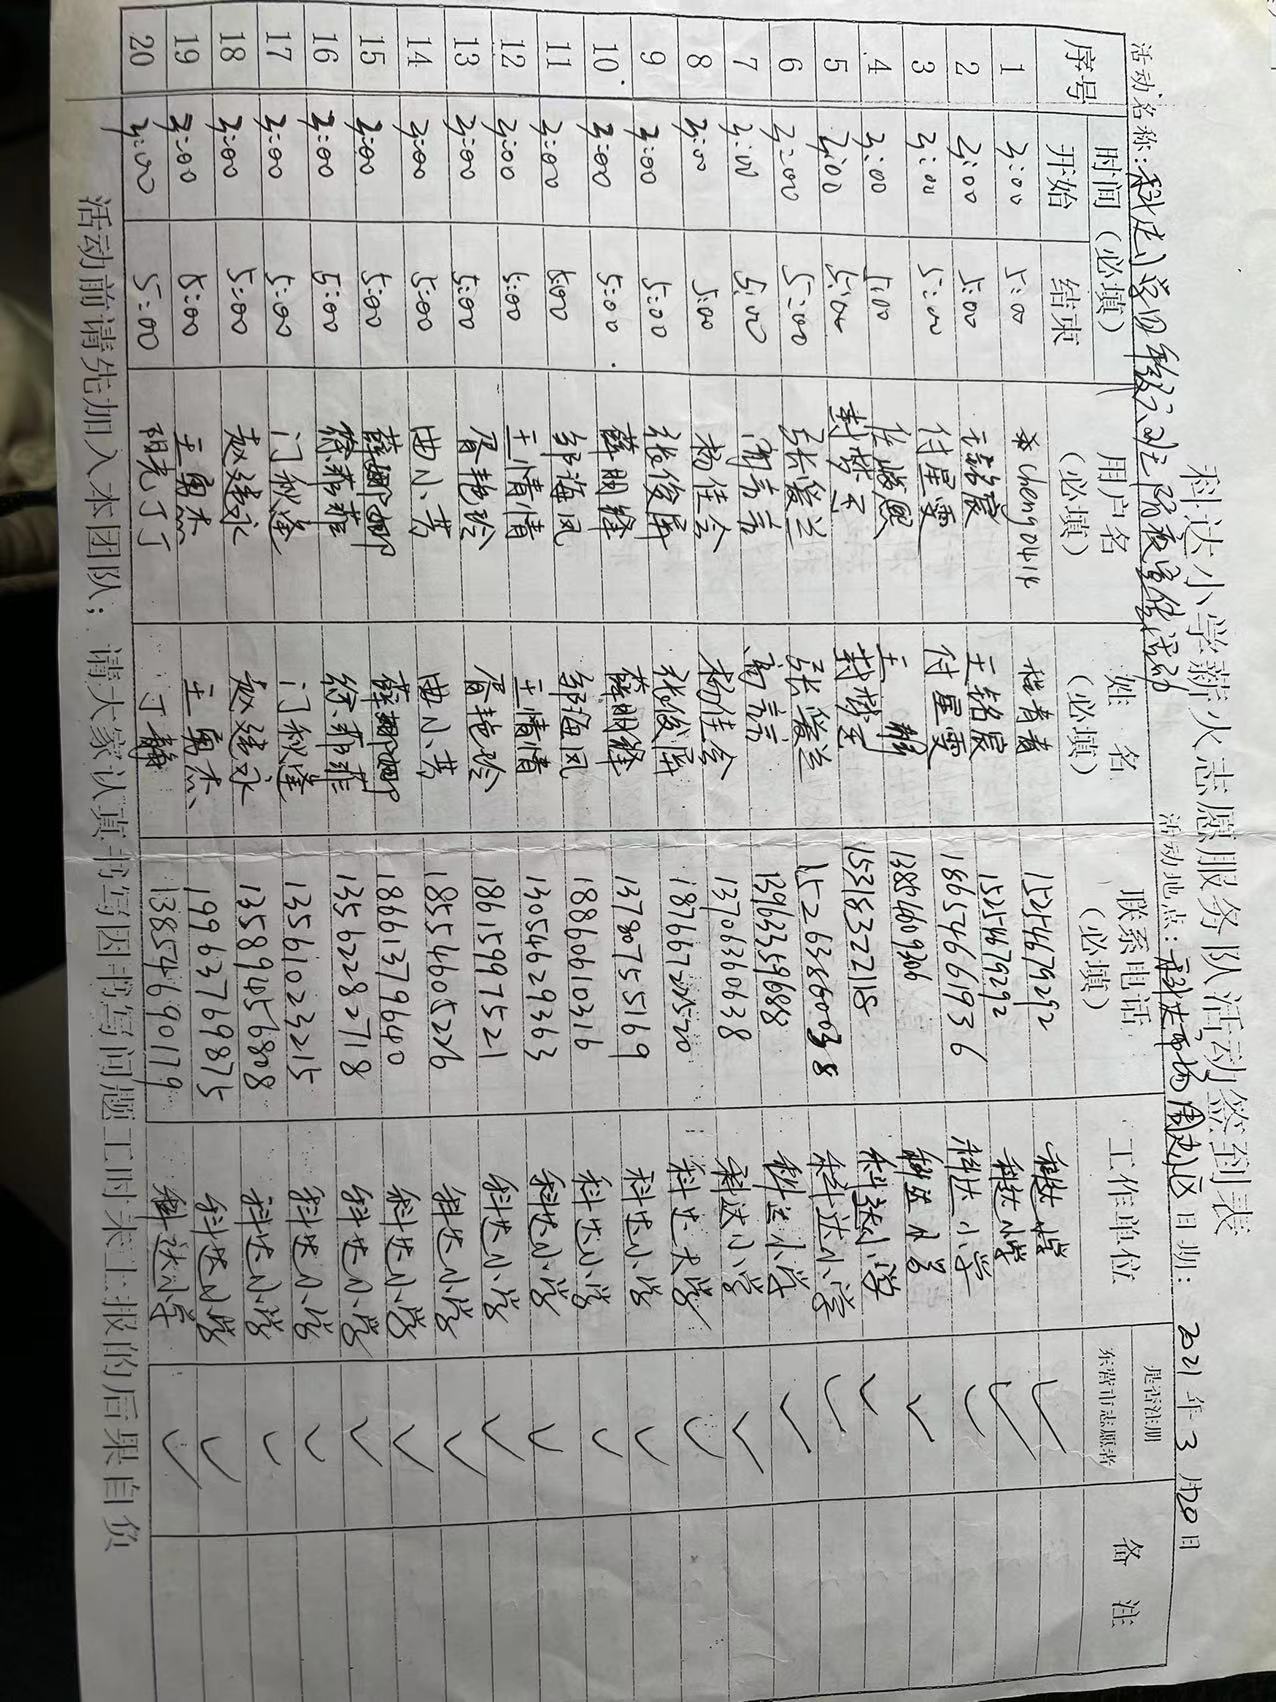 科达小学薪火志愿服务队活动签到表
活动名称:科达小学四年级六班 活动地点:科达市场周边小区 日期: 2021年3月20日
序号 时间(必填) 用户名(必填) 姓名(必填) 联系电话(必填) 工作单位 是否注册东营市志愿者 备注
开始 结束
1 3:00 5:00 cheng0414 15254679292 科达小学 ✓
2 3:00 5:00 王铭宸 15254679292 科达小学 ✓
3 3:00 5:00 付星雯 付星雯 18654661936 科达小学 ✓
4 3:00 5:00 王静 13854609306 科达小学 ✓
5 3:00 5:00 15318332218 科达小学 ✓
6 3:00 5:00 张爱兰 张爱兰 15263860038 科达小学 ✓
7 3:00 5:00 言言 13963359688 科达小学 ✓
8 3:00 5:00 杨佳会 杨佳会 13706360638 科达小学 ✓
9 3:00 5:00 张俊屏 张俊屏 科达小学 ✓
10 3:00 5:00 薛朋锋 薛朋锋 13780755169 科达小学 ✓
11 3:00 5:00 邹海凤 邹海凤 18860610316 科达小学 ✓
12 3:00 5:00 王情情 王情情 13054629363 科达小学 ✓
13 3:00 5:00 胥艳玲 胥艳玲 18615997521 科达小学 ✓
14 3:00 5:00 曲小芳 曲小芳 18554605226 科达小学 ✓
15 3:00 5:00 薛娜娜 薛娜娜 18661379640 科达小学 ✓
16 3:00 5:00 徐菲菲 徐菲菲 13562282718 科达小学 ✓
17 3:00 5:00 门秋莲 门秋莲 13561023215 科达小学 ✓
18 3:00 5:00 赵建永 赵建永 13589456808 科达小学 ✓
19 3:00 5:00 王勇杰 王勇杰 19963769875 科达小学 ✓
20 3:00 5:00 阳光丁丁 丁静 13854690179 科达小学 ✓
活动前请先加入本团队;请大家认真书写因书写问题工时未上报的后果自负